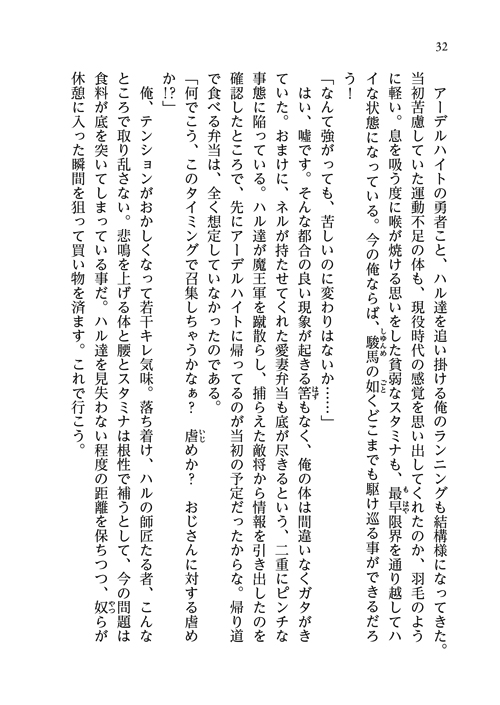 32
アーデルハイトの勇者こと、ハル達を追い掛ける俺のランニングも結構様になってきた。
当初苦慮していた運動不足の体も、現役時代の感覚を思い出してくれたのか、羽毛のよう
に軽い。息を吸う度に喉が焼ける思いをした貧弱なスタミナも、最早限界を通り越してハ
イな状態になっている。今の俺ならば、駿馬の如くどこまでも駆け巡る事ができるだろ
う！
「なんて強がっても、苦しいのに変わりはないか……」
はい、嘘です。そんな都合の良い現象が起きる筈もなく、俺の体は間違いなくガタがき
ていた。おまけに、ネルが持たせてくれた愛妻弁当も底が尽きるという、二重にピンチな
事態に陥っている。ハル達が魔王軍を蹴散らし、捕らえた敵将から情報を引き出したのを
確認したところで、先にアーデルハイトに帰ってるのが当初の予定だったからな。帰り道
で食べる弁当は、全く想定していなかったのである。
「何でこう、このタイミングで召集しちゃうかなぁ？　虐めか？　おじさんに対する虐め
か!?」
俺、テンションがおかしくなって若干キレ気味。落ち着け、ハルの師匠たる者、こんな
ところで取り乱さない。悲鳴を上げる体と腰とスタミナは根性で補うとして、今の問題は
食料が底を突いてしまっている事だ。ハル達を見失わない程度の距離を保ちつつ、奴らが
休憩に入った瞬間を狙って買い物を済ます。これで行こう。